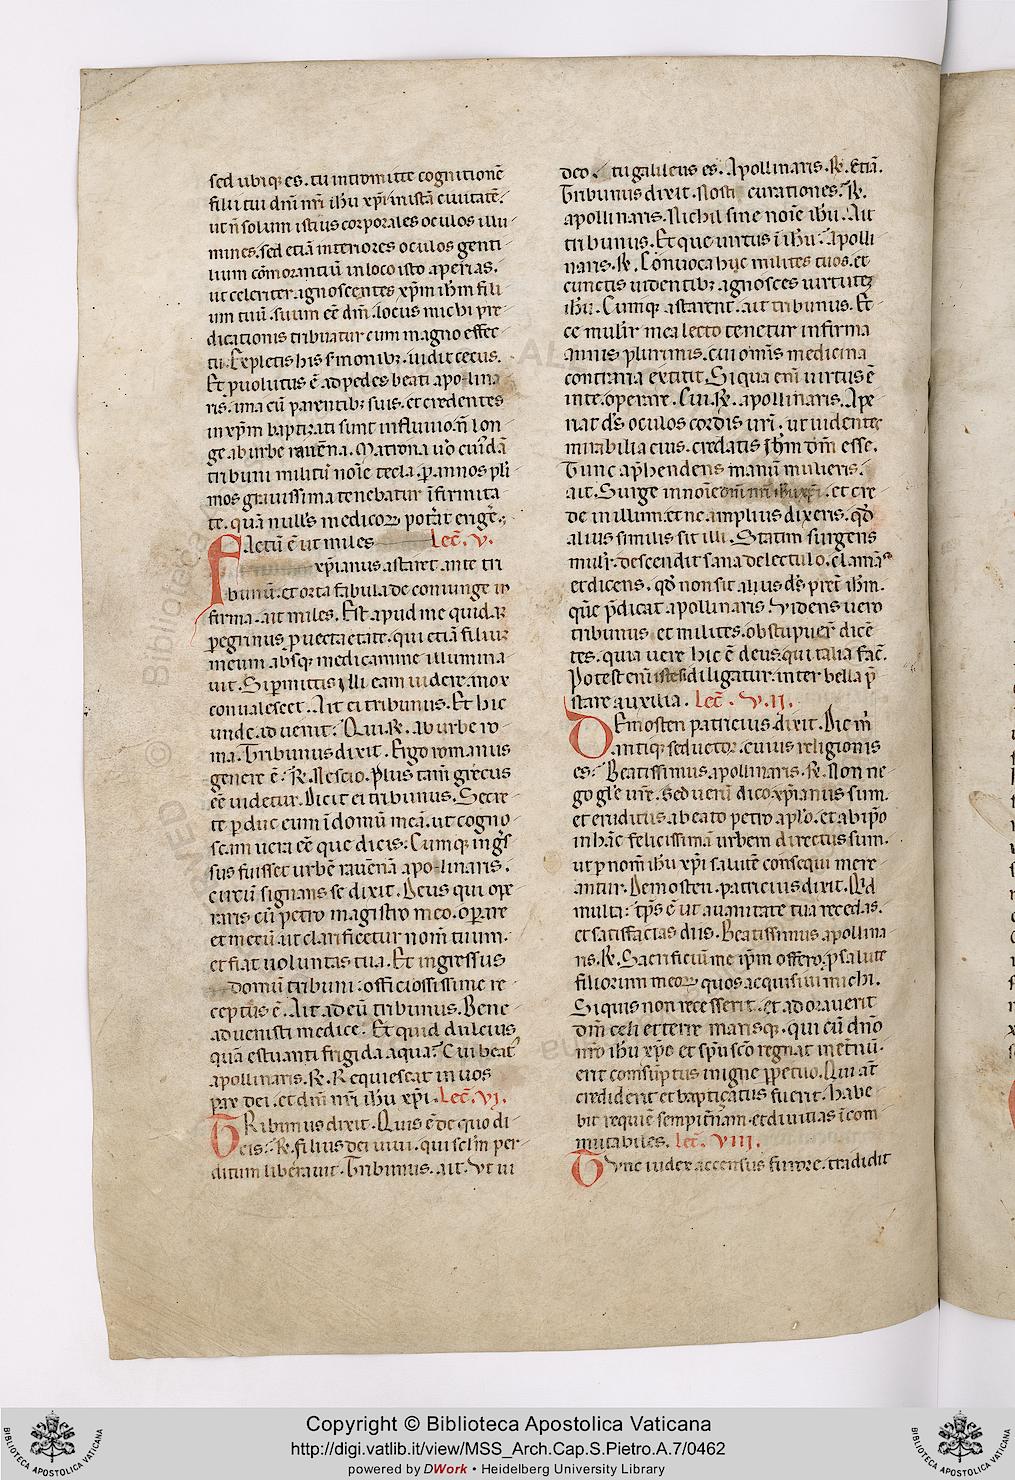 sed ubiq; es. tu intromitte cognitionē
filii tui dñi nr̄i ihū xp̄i in istā ciuitatē.
ut ñ solum istius corporales oculos illu-
mines. sed etiā interiores oculos genti-
lium cōmorantiū in loco isto aperias.
ut celeriter agnoscentes xp̄m ihm̄ fili-
um tuū. suum eē dm̄. locus michi pre-
dicationis tribuatur cum magno effec-
tu. Expletis his s̄monibz. uidit cecus.
Et p̄uolutus ē ad pedes beati apo-lina-
ris. una cū parentibz suis. et credentes
in xp̄m baptizati sunt in fluuio. ñ lon-
ge ab urbe rauēna. Matrona u̅o cuiꝰdā
tribuni militū noīe tecla. p̄ annos pl̄i-
mos grauissima tenebatur ī firmita-
te. quā null's medicoꝝ pot̄at erigē.;
Factū ē ut miles Lec̄. V.
xp̄ianus astaret ante tri
bunū. et orta fabula de coniunge in-
firma. ait miles. Est apud me quidā
p̄egrinus p̄uecta etate. qui etiā filiū
meum absq; medicamine illumina-
uit. Si p̄mittis illi eam uidere. mox
conualescet. Ait ei tribunus. Et hic
unde aduenit? Qui. ℟. ab urbe ro-
ma. Tribunus dixit. Ergo romanus
genere ē? ℟. Nescio. Plus tam̄ grecus
eē uidetur. Dicit ei tribunus. Secre-
te p̄duc eum ī domū meā. ut cogno-
scam uera eē que dicis. Cumq; ingr̄s-
sus fuisset urbē rauēnā apo-linaris.
circū signans se dixit. Deus qui ope-
raris cū petro magistro meo. op̄are
et mecū. ut clarificetur nom̄ tuum.
et fiat uoluntas tua. Et ingressus
domū tribuni. officiosissime re-
ceptus ē. Ait ad eū tribunus. Bene
aduenisti medice. Et quid dulcius
quā estuanti frigida aqua? Cui beatꝰ
apollinaris. ℟. Requiescat in uos
pax dei. et dñi nr̄i ihū xp̄i. Lec̄. VI.
Tribunus dixit. Quis ē de quo di-
cis? ℟. filius dei uiui. qui sel̄m per-
ditum liberauit. Tribunus. ait. Vt ui
deo. tu galileus es. Apollinaris. ℟. Etiā.
Tribunus dixit. Nosti curationes. ℟.
apollinaris. Nichil sine noīe ihū. Ait
tribunus. Et que uirtus ī ihū? Apolli-
naris. ℟. Conuoca huc milites tuos. et
cunctis uidentibz agnosces uirtutē
ihū. Cumq; astarent. ait tribunus. Ec-
ce mulr̄ mea lecto tenetur infirma
annis plurimis. cui om̄is medicina
contraria extitit. Si qua em̄ uirtus ē
in te. operare. Cui. ℟. apollinaris. Ape-
riat ds̄ oculos cordis ur̄i. ut uidentes
mirabilia eius. credatis ihm̄ dm̄ esse.
Tunc app̄hendens manū mulieris.
ait. Surge in noīe dñi nr̄i ihū xp̄i. et cre-
de in illum. et ne amplius dixeris. qd̄
alius similis sit illi. Statim surgens
mulr̄. descendit sana de lectulo. clamās
et dicens. qd̄ non sit alius ds̄ pret̄ ihm̄.
quē p̄dicat apollinaris. Videns uero
tribunus et milites. obstupuer̄ dicē-
tes. quia uere hic ē deus. qui talia fac̄.
Potest em̄ si diligatur. inter bella p̄-
stare auxilia. Lec̄. VII.
Demosten patricius dixit. Dic m̄
antiq; seductor. cuius religionis
es? Beatissimus apollinaris. ℟. Non ne-
go gl̄e ur̄e. sed uerū dico. xp̄ianus sum.
et eruditus a beato petro ap̄lo. et ab ip̄o
in hāc felicissimā urbem directus sum.
ut p̄ nom̄ ihū xp̄i salutē consequi mere-
antur. Demosten. patricius dixit. Qd̄
multa? tp̄s ē ut a uanitate tua recedas.
et satisfacias diis. Beatissimus apollina-
ris. ℟. Sacrificiū me ip̄m offero. p̄ salute
filiorum meoꝝ quos acquisiui michi.
Siquis non recesserit. et adorauerit
dm̄ celi et terre marisq;. qui cū dño
nr̄o ihū xp̄o et sp̄u sc̄o regnat in et̄nū.
erit consūptus in igne p̄petuo. Qui aut̄
crediderit et baptiçatus fuerit. habe-
bit requiē sempit̄nam. et diuitias ī com-
mutabiles. Lec̄. VIII.
Tunc iudex accensus furore. tradidit
Copyright © Biblioteca Apostolica Vaticana
http://digi.vatlib.it/view/MSS_Arch.Cap.S.Pietro.A.7/0462
powered by DWork • Heidelberg University Library
BIBLIOTECA APOSTOLICA VATICANA
BIBLIOTECA APOSTOLICA VATICANA